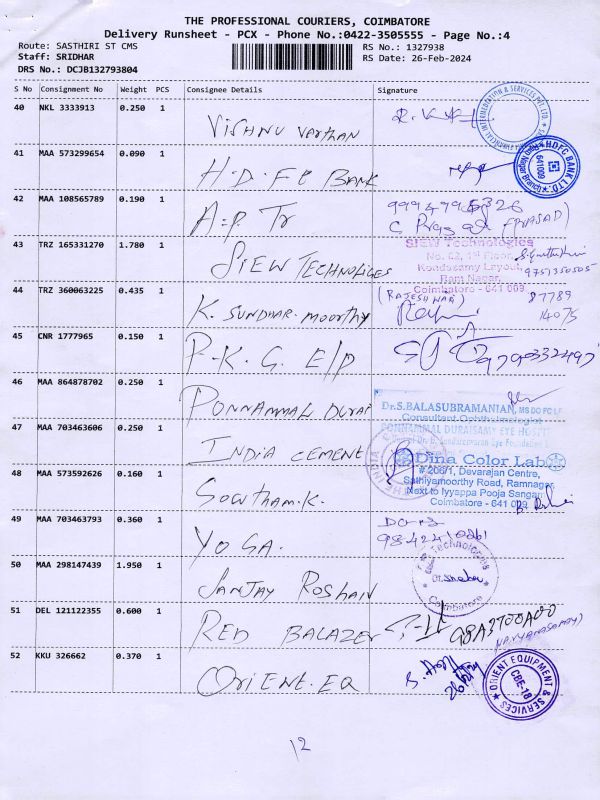 THE PROFESSIONAL COURIERS, COIMBATORE
Delivery Runsheet - PCX - Phone No.:0422-3505555 - Page No.:4
Route: SASTHIRI ST CMS
RS No.: 1327938
Staff: SRIDHAR
RS Date: 26-Feb-2024
DRS No.: DCJB132793804
S No Consignment No Weight PCS Consignee Details Signature
40 NKL 3333913 0.250 1
Vishnu Varthan
41 MAA 573299654 0.090 1
H.D.F.C BANK
HDFC BANK LTD.
641009
42 MAA 108565789 0.190 1
A.P. Tr
(PRASAD)
43 TRZ 165331270 1.780 1
SIEW TECHNOLIGES
SIEW Technologies
No. 62, 1st Floor,
Kondasamy Layout,
Ram Nagar,
Coimbatore - 641 009
9751350505
44 TRZ 360063225 0.435 1
K. SUNDHAR. MOORTHY
(RAJESHWARI)
87789
14075
45 CNR 1777965 0.150 1
P.K.G. E/P
46 MAA 864878702 0.250 1
PONNAMMAL DURAI
Dr.S.BALASUBRAMANIAN, MS DO FC LF
Consultant Ophthalmologist
PONNAMMAL DURAISAMY EYE HOSPIT
47 MAA 703463606 0.250 1
INDIA CEMENT
Dina Color Lab
# 206/1, Devarajan Centre,
Sathiyamoorthy Road, Ramnagar,
Next to Iyyappa Pooja Sangam
Coimbatore - 641 009
48 MAA 573592626 0.160 1
Gowtham.K.
49 MAA 703463793 0.360 1
YOGA.
50 MAA 298147439 1.950 1
SANJAY ROSHAN
Coimbatore
51 DEL 121122355 0.600 1
RED BALAZER
52 KKU 326662 0.370 1
ORIENT. EQ
26/2/24
ORIENT EQUIPMENT & SERVICES
CBE-18
12